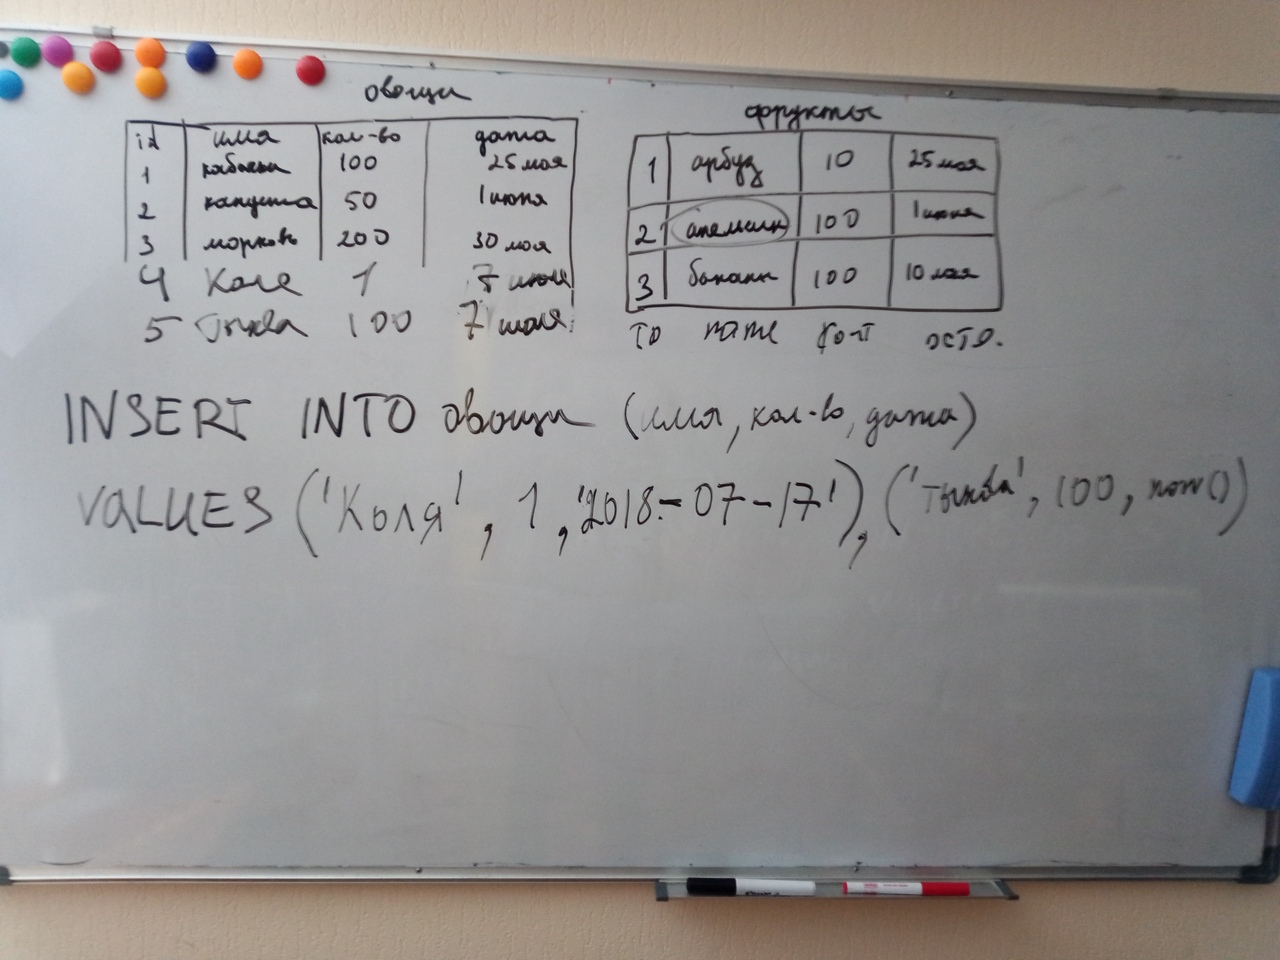 овощи
id имя кол-во дата
1 кабачки 100 25 мая
2 капуста 50 1 июня
3 морковь 200 30 мая
4 Коля 1 7 июля
5 Тыква 100 7 июля
фрукты
1 арбуз 10 25 мая
2 апельсин 100 1 июня
3 бананы 100 10 мая
name
INSERT INTO овощи (имя, кол-во, дата)
VALUES ('Коля', 1, '2018-07-17'), ('Тыква', 100, now())